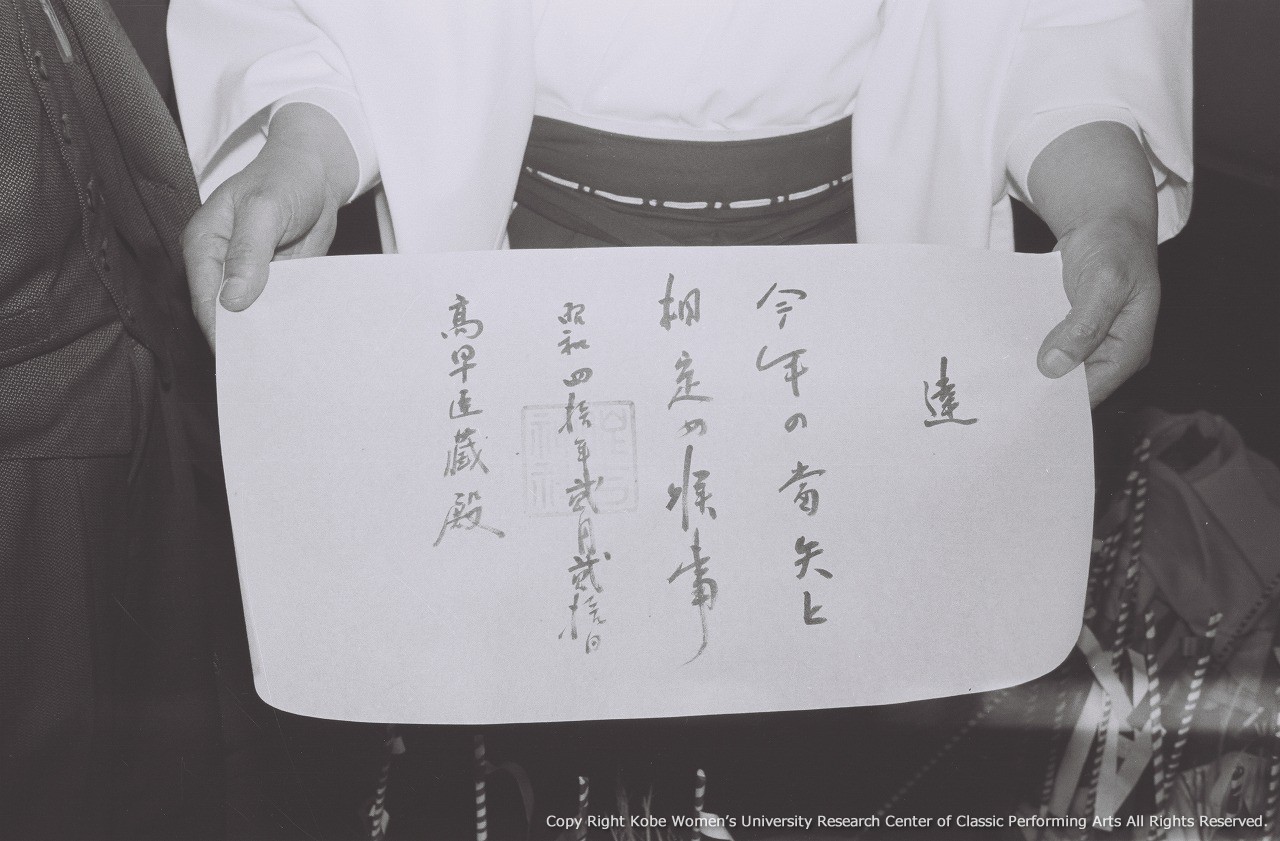 達
今年の當矢と
相定め候事
昭和四拾年貮月貮拾日
高早匠藏殿
Copy Right Kobe Women's University Research Center of Classic Performing Arts All Rights Reserved.